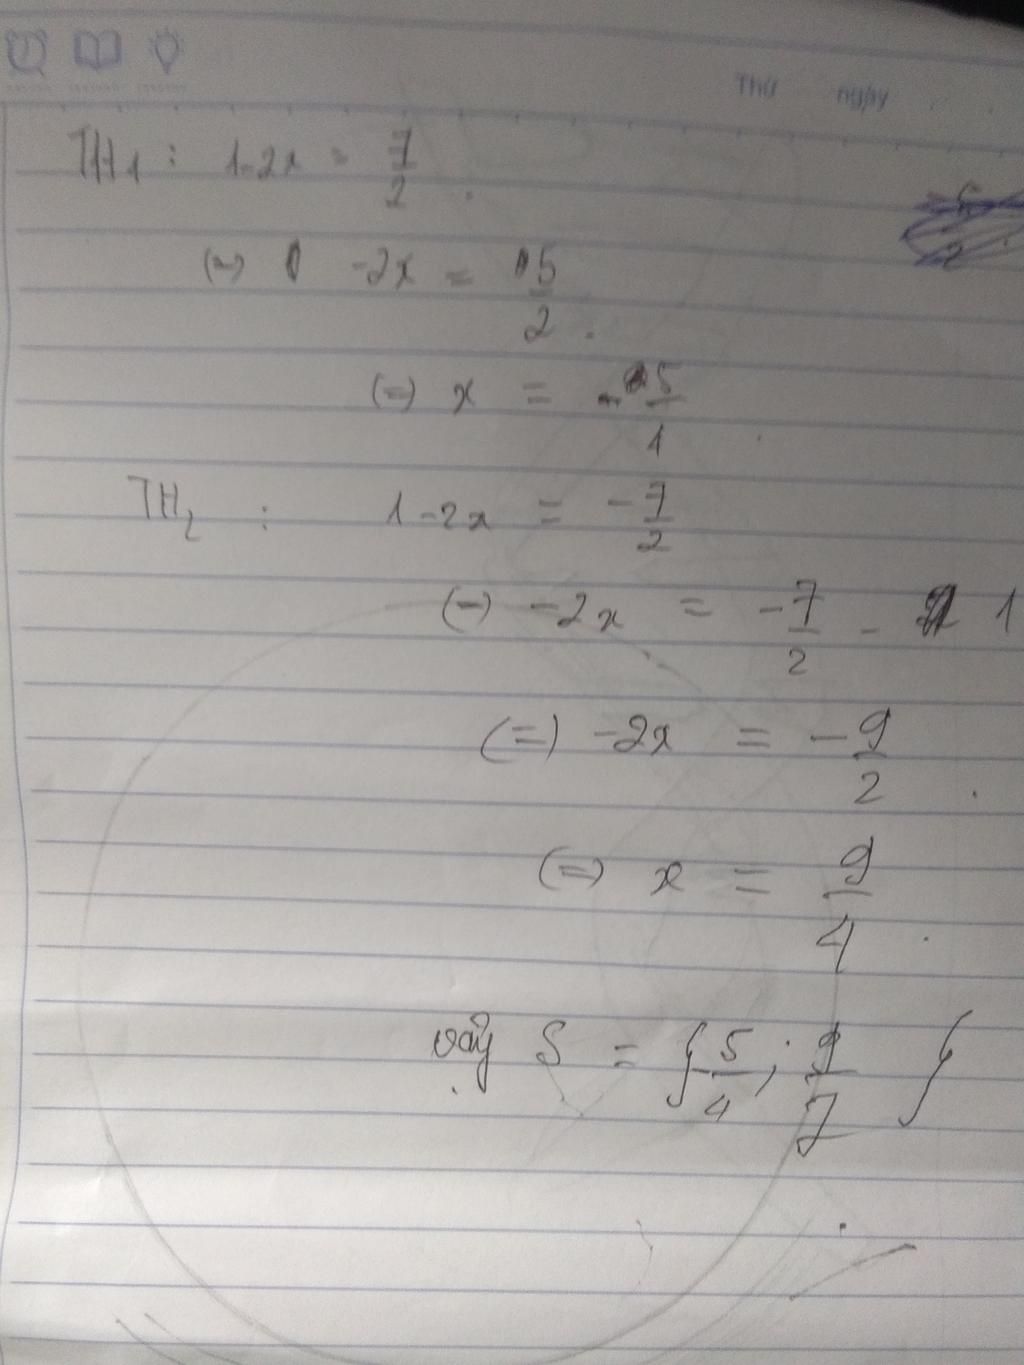 Thứ ngày
TH1 : 1-2x = 7/2 .
(=) -2x = 5/2 .
(=) x = -5/1
TH2 : 1-2x = -7/2
(=) -2x = -7/2 - 1
(=) -2x = -9/2 .
(=) x = 9/4 .
Vậy S = {-5/4 ; 9/7 }